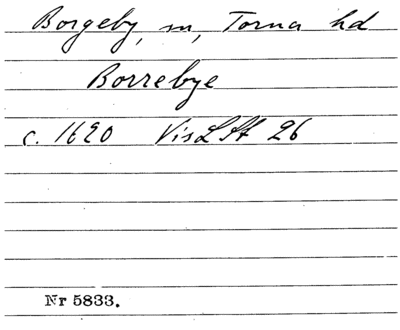 Borgeby, sn, Torna hd
Borrebye
c. 1620 VisLSt 26
Nr 5833.